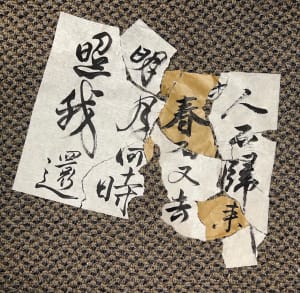 人不歸来
春又去
明月何時
照我還